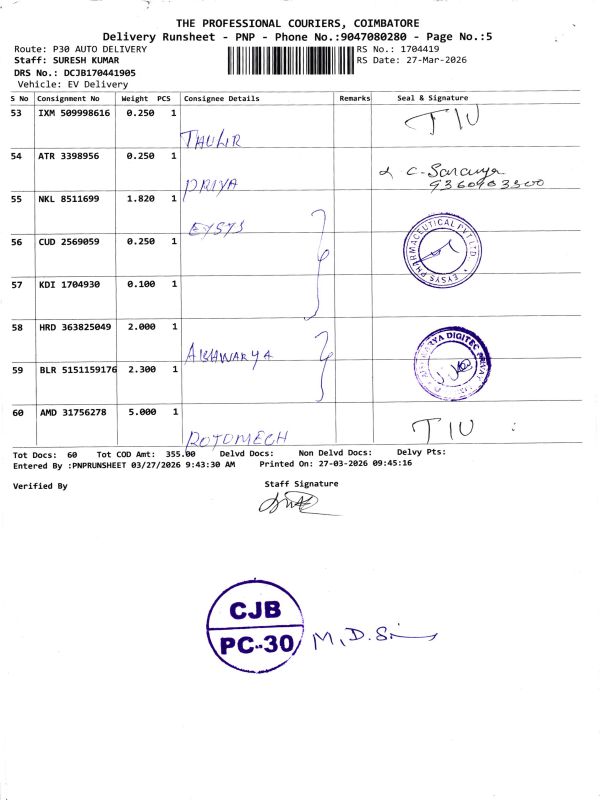 THE PROFESSIONAL COURIERS, COIMBATORE
Delivery Runsheet - PNP - Phone No.:9047080280 - Page No.:5
Route: P30 AUTO DELIVERY RS No.: 1704419
Staff: SURESH KUMAR RS Date: 27-Mar-2026
DRS No.: DCJB170441905
Vehicle: EV Delivery
S No Consignment No Weight PCS Consignee Details Remarks Seal & Signature
53 IXM 509998616 0.250 1 THULIR TIU
54 ATR 3398956 0.250 1 PRIYA C. Saranya
9360903300
55 NKL 8511699 1.820 1 EYSYS
EYSYS PHARMACEUTICAL PVT LTD
56 CUD 2569059 0.250 1
57 KDI 1704930 0.100 1
58 HRD 363825049 2.000 1 AISHWARYA
59 BLR 5151159176 2.300 1
60 AMD 31756278 5.000 1 ROTOMECH TIU
Tot Docs: 60 Tot COD Amt: 355.00 Delvd Docs: Non Delvd Docs: Delvy Pts:
Entered By :PNPRUNSHEET 03/27/2026 9:43:30 AM Printed On: 27-03-2026 09:45:16
Verified By Staff Signature
CJB
PC-30 M.D.